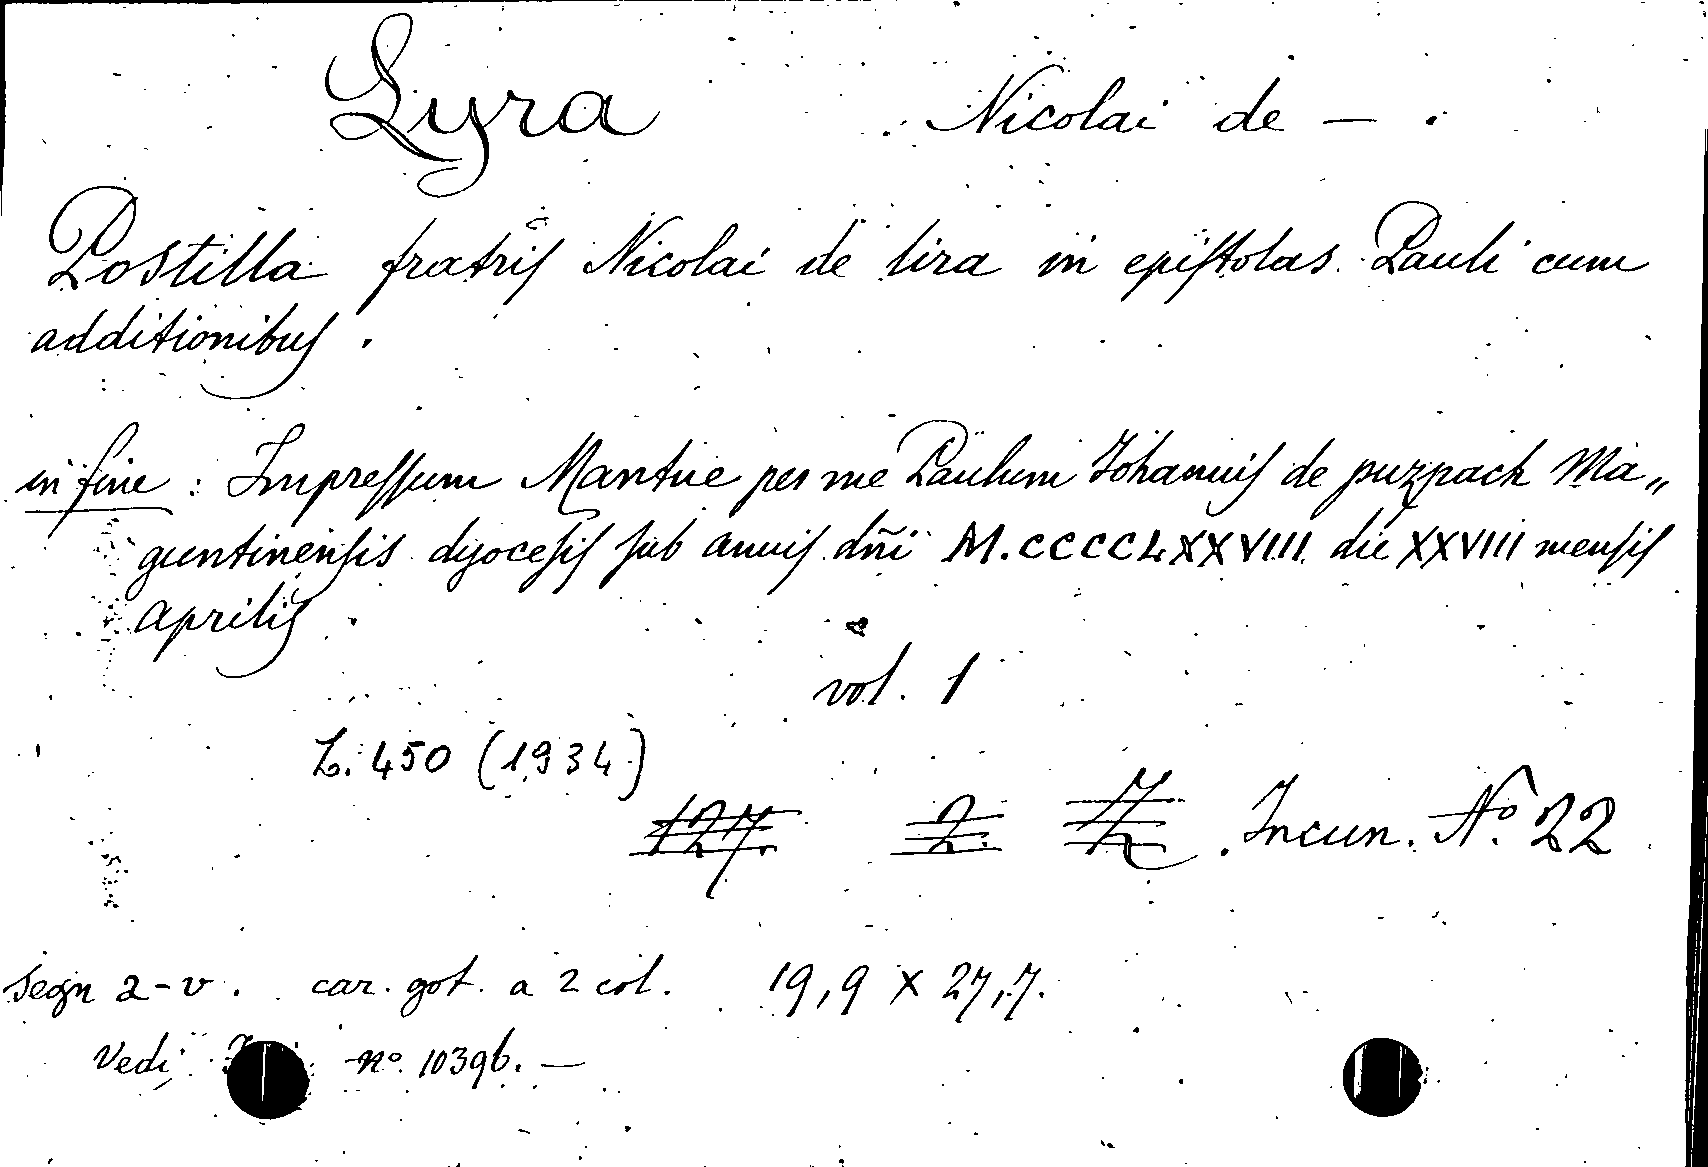 Lyra Nicolai de — .
Postilla fratris Nicolai de lira in epistolas Pauli cum
additionibus .
in fine : Impressum Mantue per me Paulum Johannis de puzpach Ma„
guntinensis dyocesis sub annis dñi M.CCCCLXXVIII. die XXVIII mensis
aprilis .
vol. 1
L. 450 (1934)
127. 2. Z Incun. Nº 22
segn a-v. car. got. a 2 col. 19,9 X 27,7.
Vedi nº. 10396. —